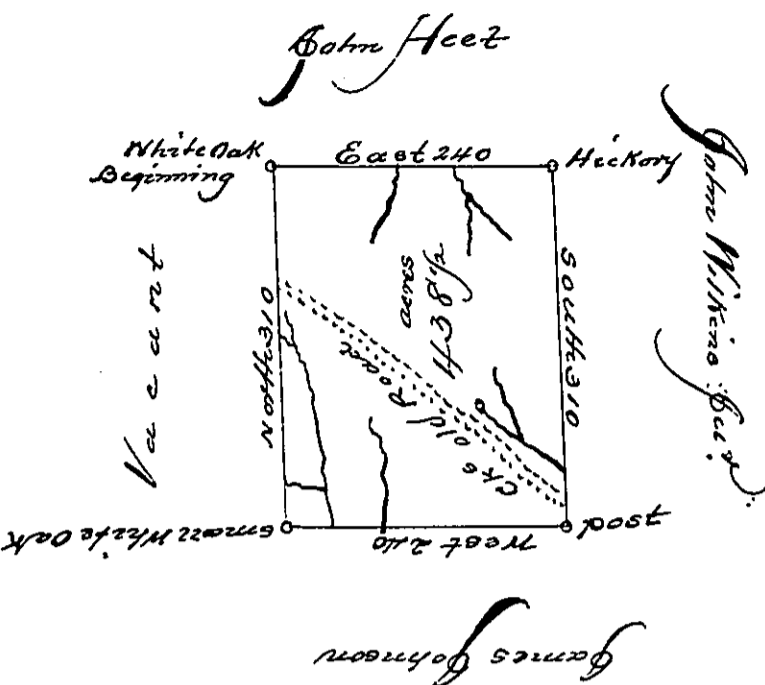 John Heet
White Oak
Beginning
East 240
Hickory
John Wilkins Jun.r
South 310
438 1/2
acres
Cks old Road
Vacant
North 310
Small White Oak
West 240
Post
James Johnson